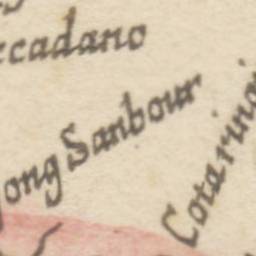 ccadano
ong Sanbour
Cotarinoi